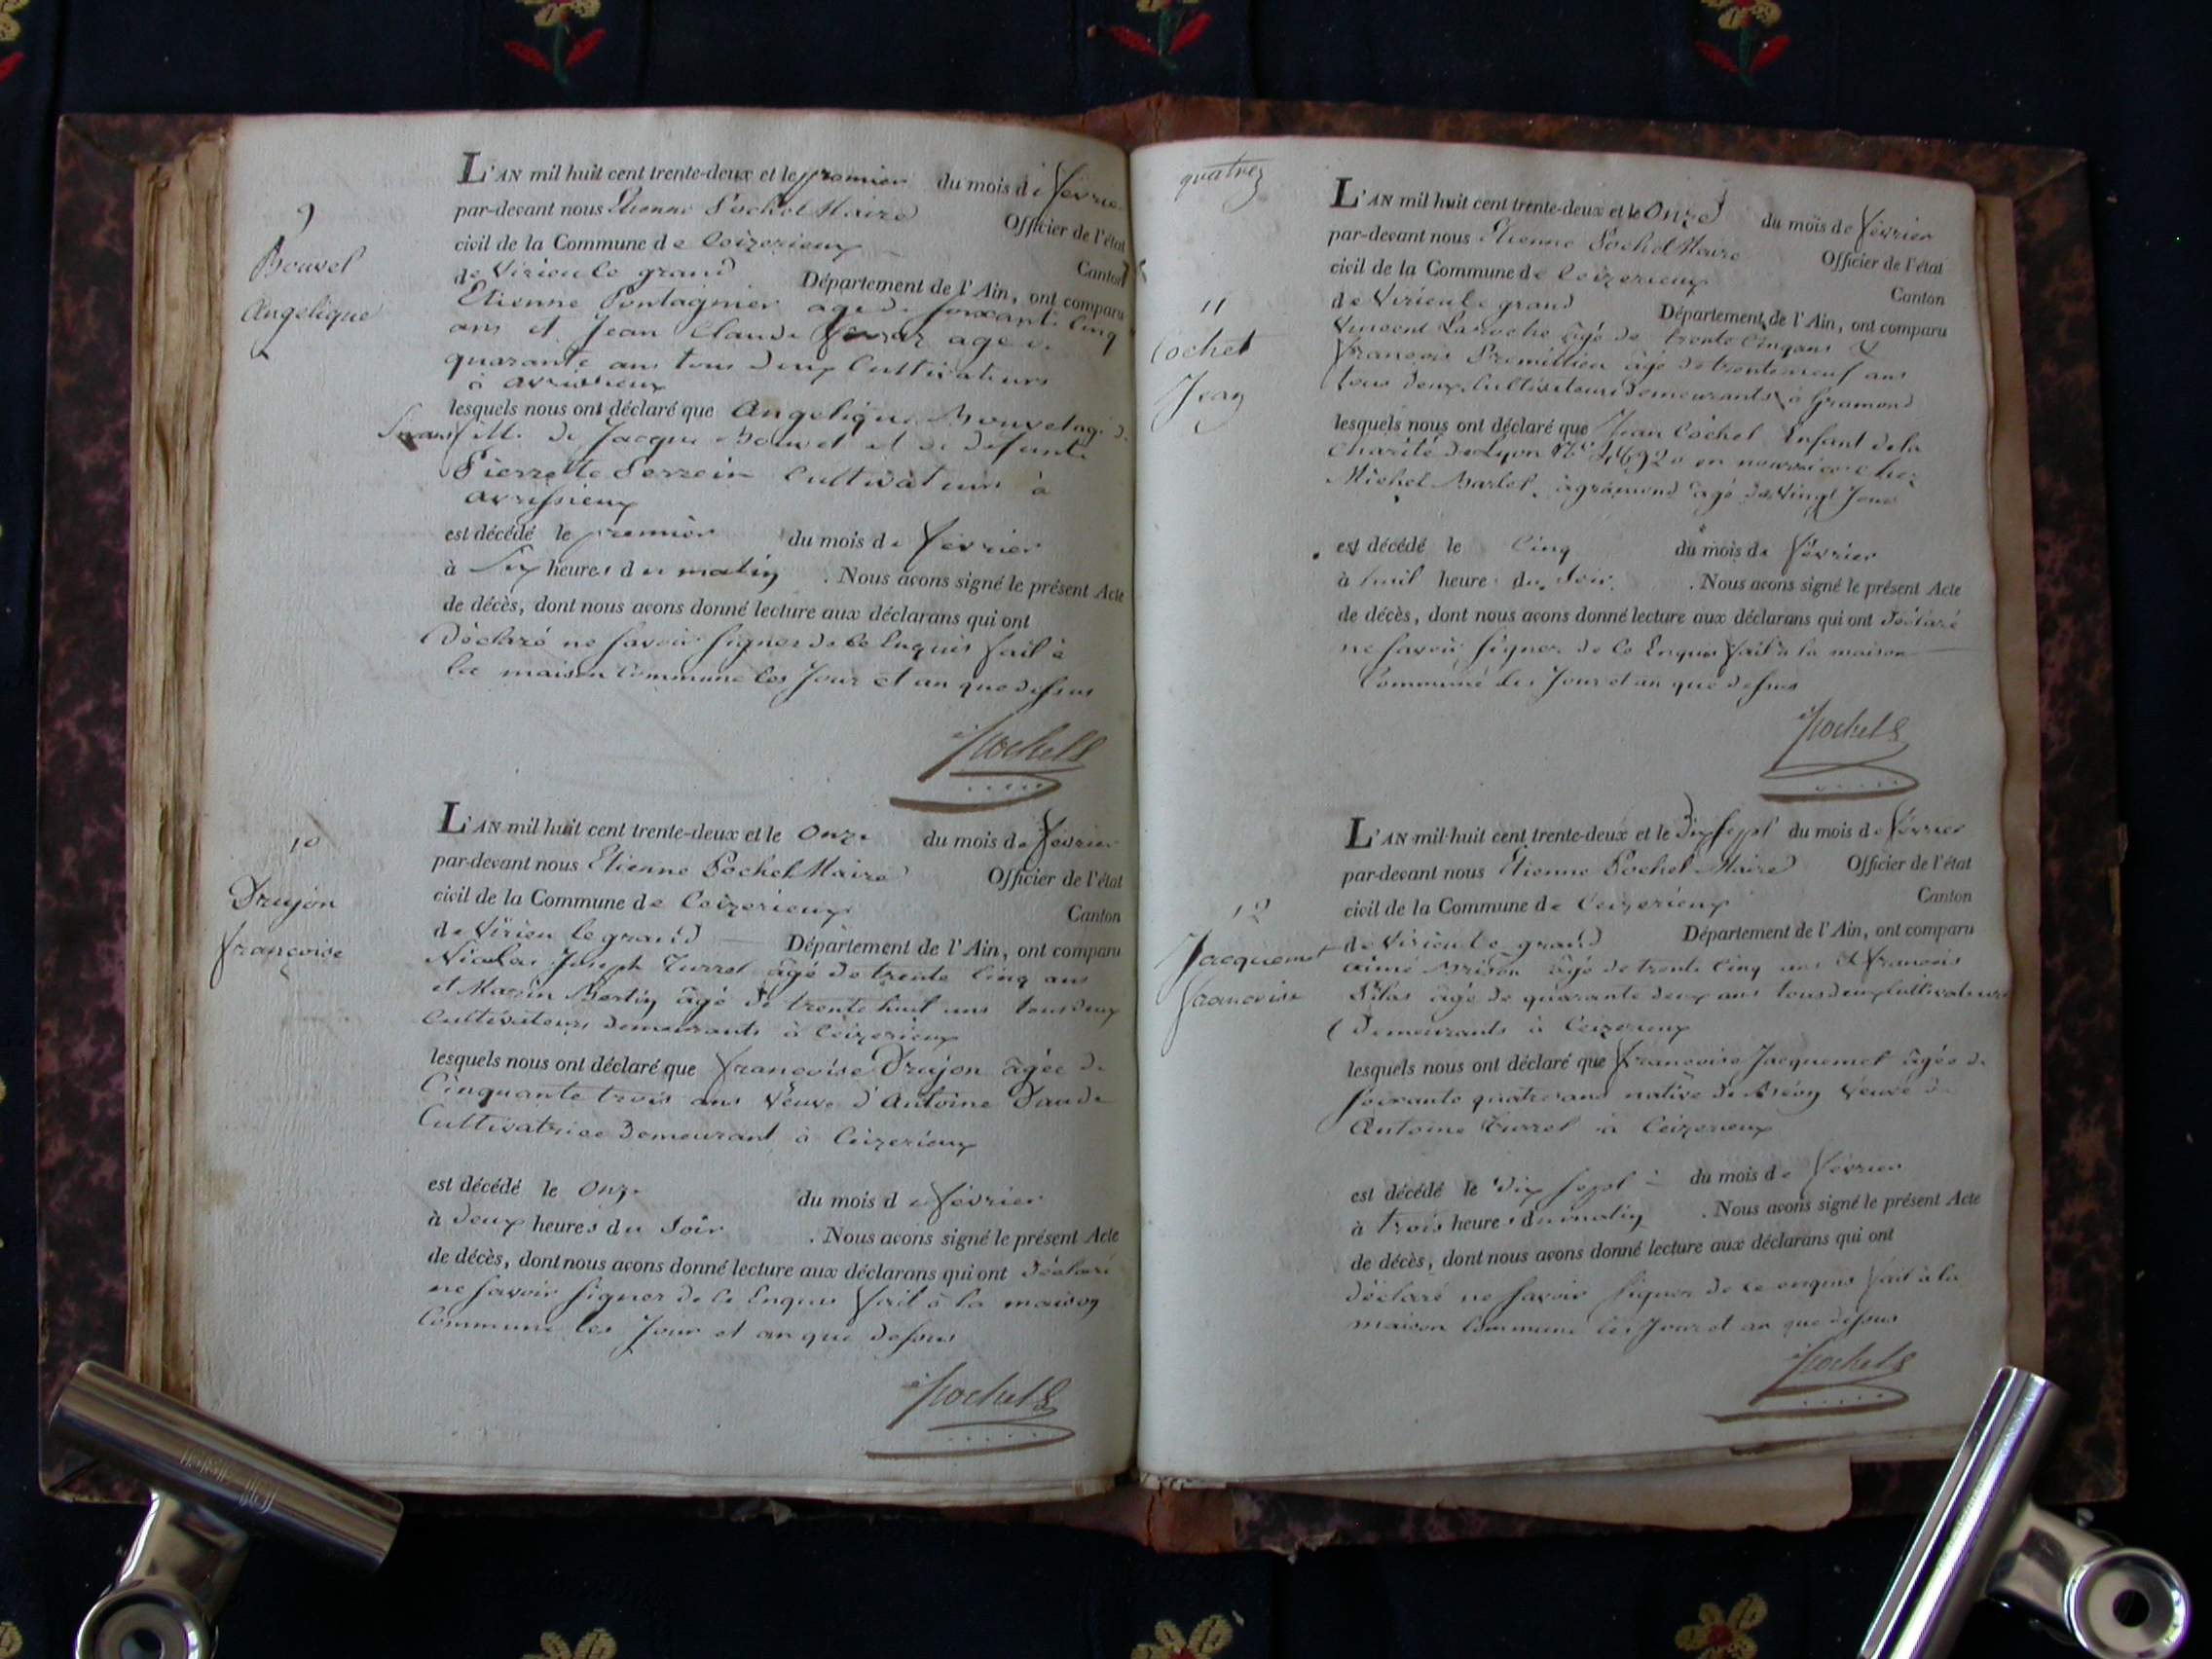 9
Bouvet
Angelique
L'AN mil huit cent trente-deux et le premier du mois de fevrier
par-devant nous Etienne Pochet Maire Officier de l'état
civil de la Commune de Ceizerieux Canton
de Virieu le grand Département de l'Ain, ont comparu
Etienne Pontagnier agé de soixante Cinq
ans et Jean Claude agé de
quarante ans tous deux Cultivateurs
à avrissieux
lesquels nous ont déclaré que Angelique Bouvet agé de
fille de Jacque Bouvet et de défunte
Pierrette Perrein Cultivateurs à
avrissieux
est décédé le premier du mois de fevrier
à Six heures du matin . Nous avons signé le présent Acte
de décès, dont nous avons donné lecture aux déclarans qui ont
Déclaré ne savoir signer de ce Enquis fait à
la maison Commune les Jour et an que dessus
Pochet
10
Drujon
françoise
L'AN mil huit cent trente-deux et le Onze du mois de fevrier
par-devant nous Etienne Pochet Maire Officier de l'état
civil de la Commune de Ceizerieux Canton
de Virieu le grand Département de l'Ain, ont comparu
Nicolas Joseph Turrel âgé de trente Cinq ans
et Marin Bertin âgé de trente huit ans tous deux
Cultivateurs demeurants à Ceizerieux
lesquels nous ont déclaré que françoise Drujon âgée de
Cinquante trois ans Veuve d'Antoine
Cultivatrice Demeurant à Ceizerieux
est décédé le Onze du mois de février
à deux heures du Soir . Nous avons signé le présent Acte
de décès, dont nous avons donné lecture aux déclarans qui ont déclaré
ne savoir signer de ce Enquis fait à la maison
Commune les Jour et an que dessus
Pochet
quatre
11
Cochet
Jean
L'AN mil huit cent trente-deux et le Onze du mois de février
par-devant nous Etienne Pochet Maire Officier de l'état
civil de la Commune de Ceizerieux Canton
de Virieu le grand Département de l'Ain, ont comparu
Vincent Laroche âgé de trente Cinq ans &
françois Premillieu âgé de trente neuf ans
tous deux Cultivateurs demeurants à Gramond
lesquels nous ont déclaré que Jean Cochet Enfant de la
Charité de Lyon en nourrice chez
Michel à gramond agé de Vingt Jours
est décédé le Cinq du mois de février
à huit heure du Soir . Nous avons signé le présent Acte
de décès, dont nous avons donné lecture aux déclarans qui ont déclaré
ne savoir signer de ce Enquis fait à la maison
Commune les Jour et an que dessus
Pochet
12
Jacquemet
françoise
L'AN mil huit cent trente-deux et le Dix sept du mois de février
par-devant nous Etienne Pochet Maire Officier de l'état
civil de la Commune de Ceizerieux Canton
de Virieu le grand Département de l'Ain, ont comparu
aimé Brison âgé de trente Cinq ans & françois
âgé de quarante deux ans tous deux Cultivateurs
Demeurants à Ceizerieux
lesquels nous ont déclaré que françoise Jacquemet âgée de
soixante quatre ans native de Veuve de
Antoine Turrel à Ceizerieux
est décédé le Dix sept du mois de février
à trois heures du matin . Nous avons signé le présent Acte
de décès, dont nous avons donné lecture aux déclarans qui ont
déclaré ne savoir signer de ce enquis fait à la
maison Commune les Jour et an que dessus
Pochet